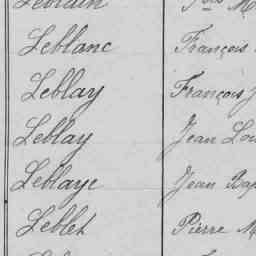 Leblanc François
Leblay François J
Leblay Jean Lou
Leblaye Jean Bap
Leblet Pierre M